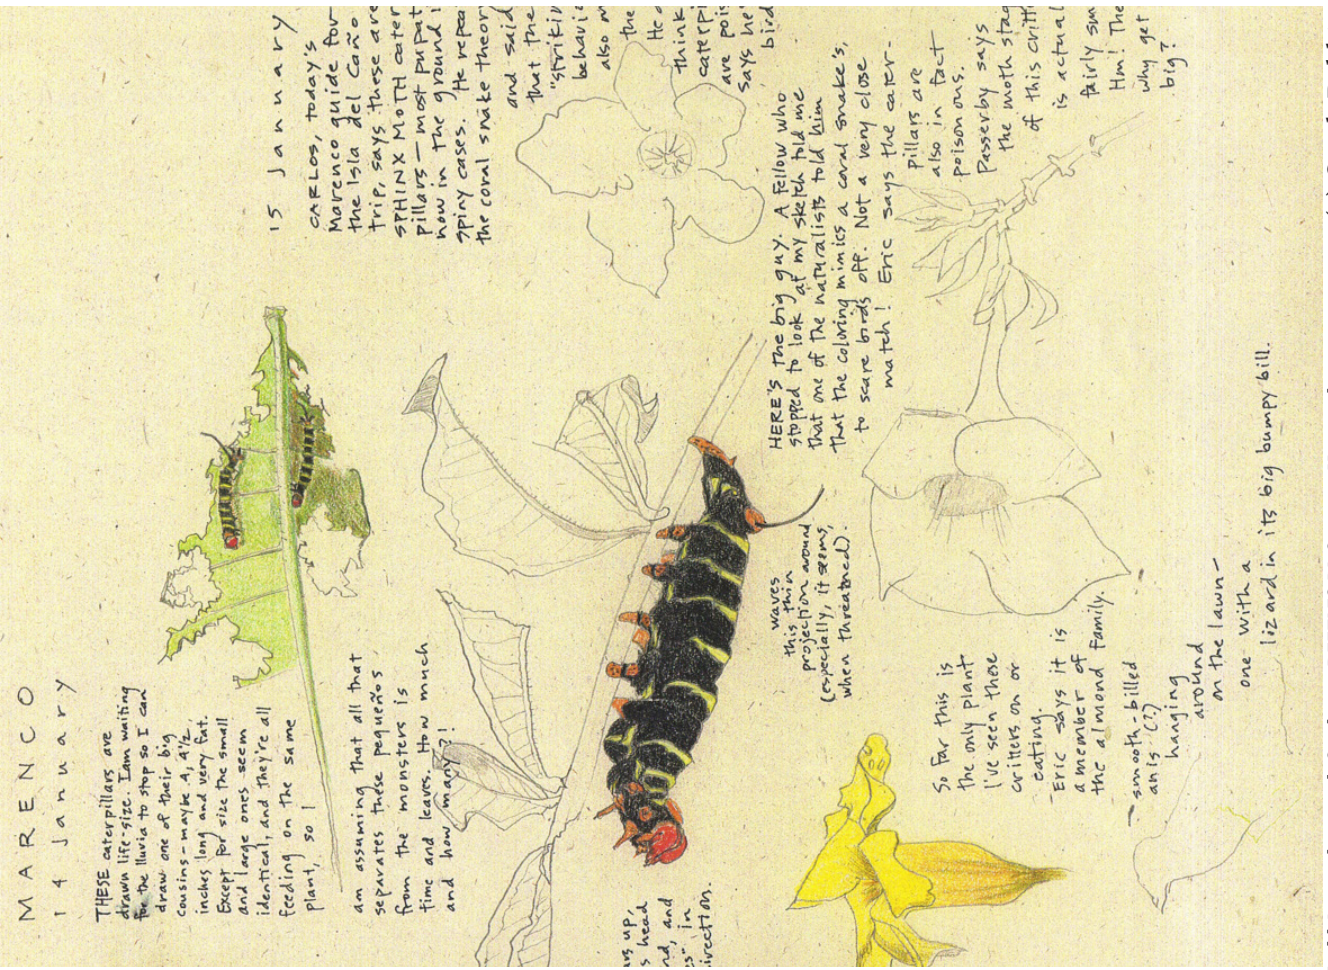 MARENCO
14 January
THESE caterpillars are
drawn life-size. I am waiting
for the lluvia to stop so I can
draw one of their big
cousins—maybe 4, 4½,
inches long and very fat.
Except for size the small
and large ones seem
identical, and they're all
feeding on the same
plant, so I
am assuming that all that
separates these pequeños
from the monsters is
time and leaves. How much
and how many?!
15 January
CARLOS, today's
Marenco guide for
the Isla del Caño
trip, says these are
SPHINX MOTH cater
pillars—most pupat
now in the ground i
spiny cases. He repea
the coral snake theory
and said
that the
"strikin
behavi
also m
the
He
think
caterpi
are pois
says he
bird
up,
s head
nd, and
in
irection.
waves
this thin
projection around
(especially, it seems,
when threatened).
HERE'S the big guy. A fellow who
stopped to look at my sketch told me
that one of the naturalists told him
that the coloring mimics a coral snake's,
to scare birds off. Not a very close
match! Eric says the cater-
pillars are
also in fact
poisonous.
Passerby says
the moth stag
of this critt
is actual
fairly sm
Hm! The
why get
big?
So far this is
the only plant
I've seen these
critters on or
eating.
Eric says it is
a member of
the almond family.
smooth-billed
anis (??)
hanging
around
on the lawn—
one with a
lizard in its big bumpy bill.